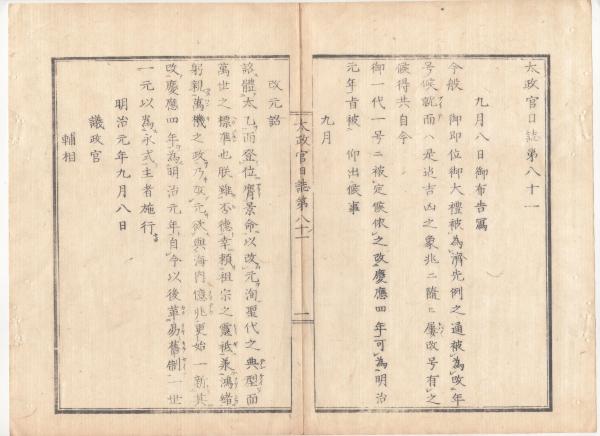 太政官日誌第八十一
九月八日御布告寫
今般　御即位御大禮被為濟先例之通被為改年
号候就而ハ是迄吉凶之象兆ニ隨ヒ屢改号有之
候得共自今
御一代一号ニ被定候依之改慶應四年可為明治
元年旨被　仰出候事
九月
太政官日誌第八十一
一
改元詔
詔體太乙而登位膺景命以改元洵聖代之典型而
萬世之標準也朕雖否德幸賴祖宗之靈祗承鴻緒
躬親萬機之政乃改元欲與海内億兆更始一新其
改慶應四年為明治元年自今以後革易舊制一世
一元以為永式主者施行
明治元年九月八日
議政官
輔相